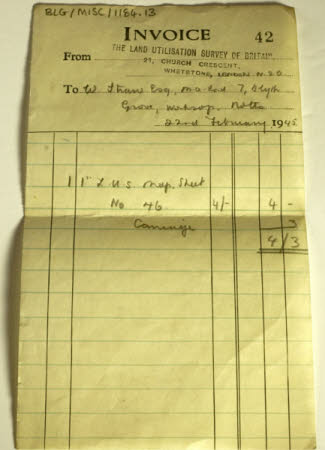 BLG/MISC/1184.13
INVOICE 42
From THE LAND UTILISATION SURVEY OF BRITAIN,
21, CHURCH CRESCENT,
WHETSTONE, LONDON N.20
To W. Straw Esq, 7, Blyth
Grove, Worksop. Notts
22nd February 1945
1 1" L.U.S. Map. Sheet
No 46 4/- 4 -
Carriage 3
4/3